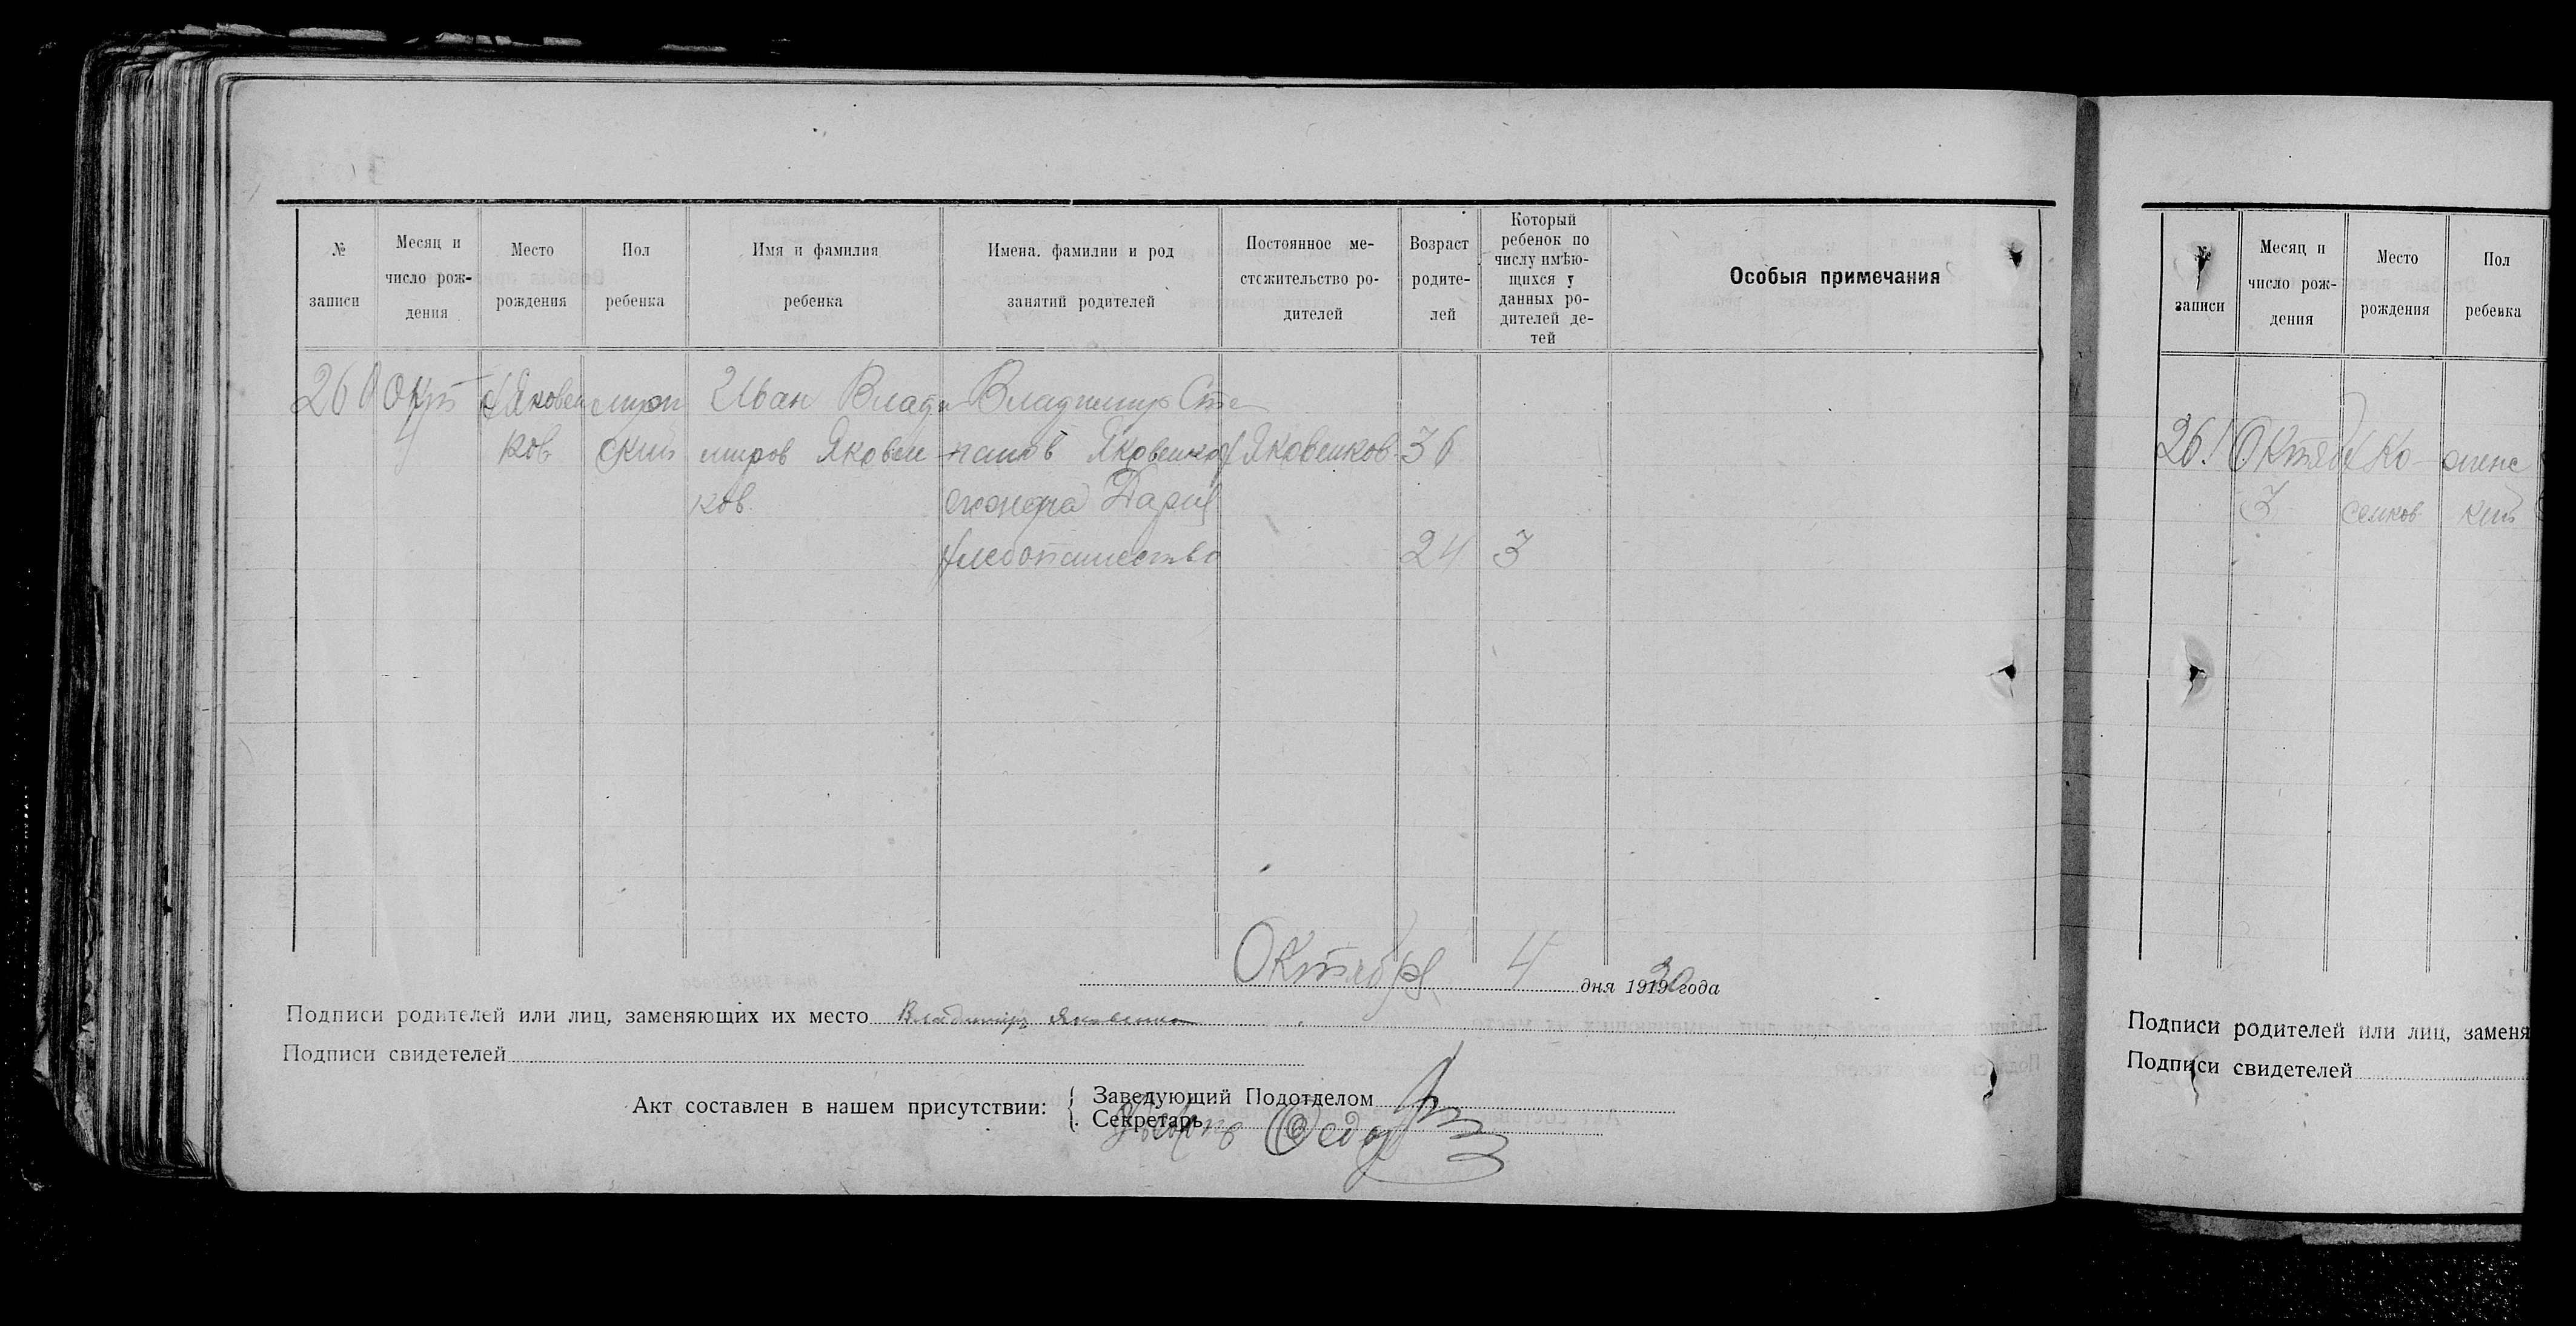 № записи
Месяц и число рож-дения
Место рождения
Пол ребенка
Имя и фамилия ребенка
Имена, фамилии и род занятий родителей
Постоянное ме-стожительство ро-дителей
Возраст родите-лей
Который ребенок по числу имѣю-щихся у данных ро-дителей де-тей
Особыя примечания
260 Окт х Яковен муж Иван Влади Владимир Сте
4 ков ский миров Яковен панов Яковенков х Яковенков 36
ков. жена Дария
хлебопашество 24 3
Октября 4 дня 1920 года
Подписи родителей или лиц, заменяющих их место Владимир Яковенко
Подписи свидетелей
Акт составлен в нашем присутствии:
Заведующий Подотделом
Секретарь
№ записи
Месяц и число рож-дения
Место рождения
Пол ребенка
261 Октяб х Ко- женс
3 сенков кий
Подписи родителей или лиц, заменя
Подписи свидетелей